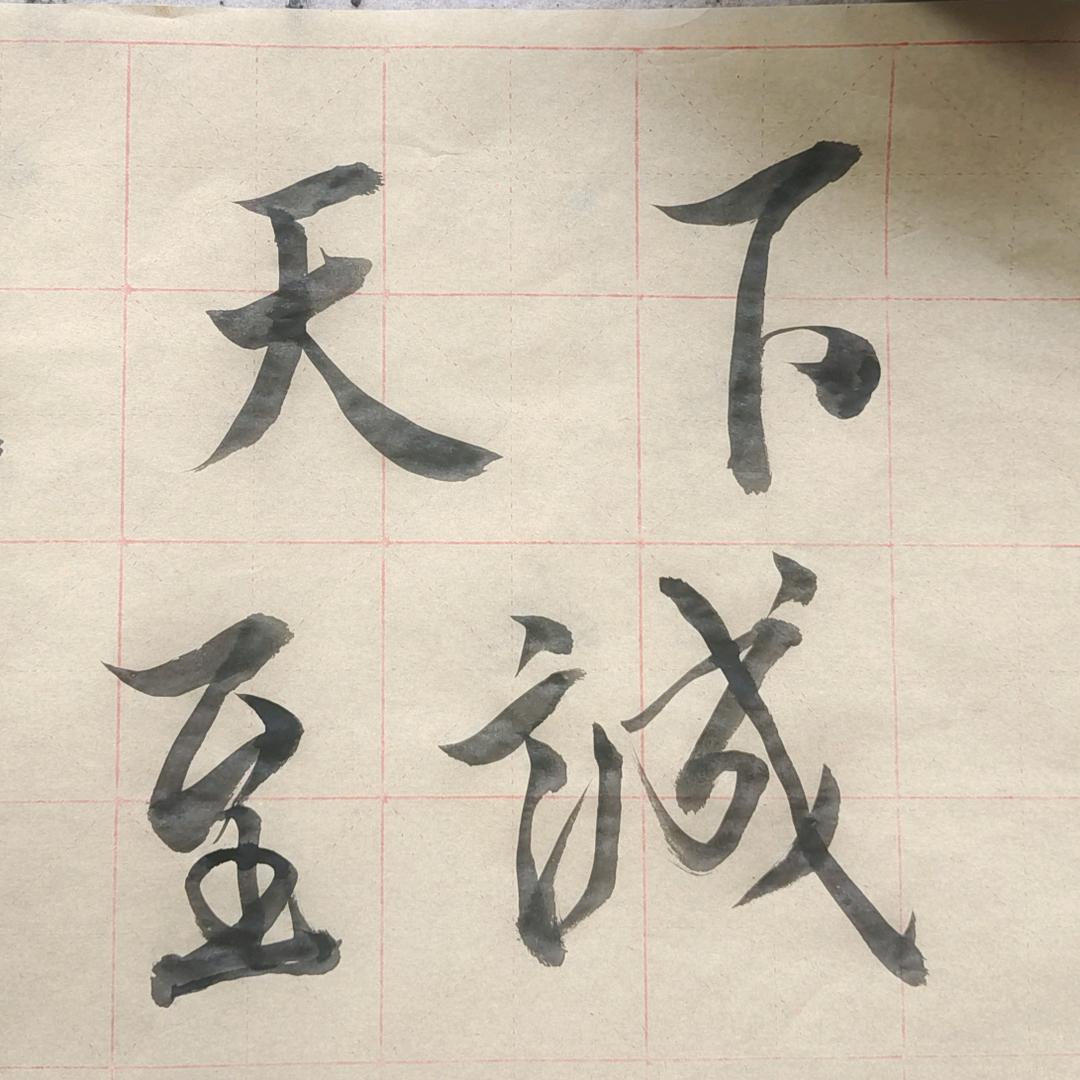 天下
至誠